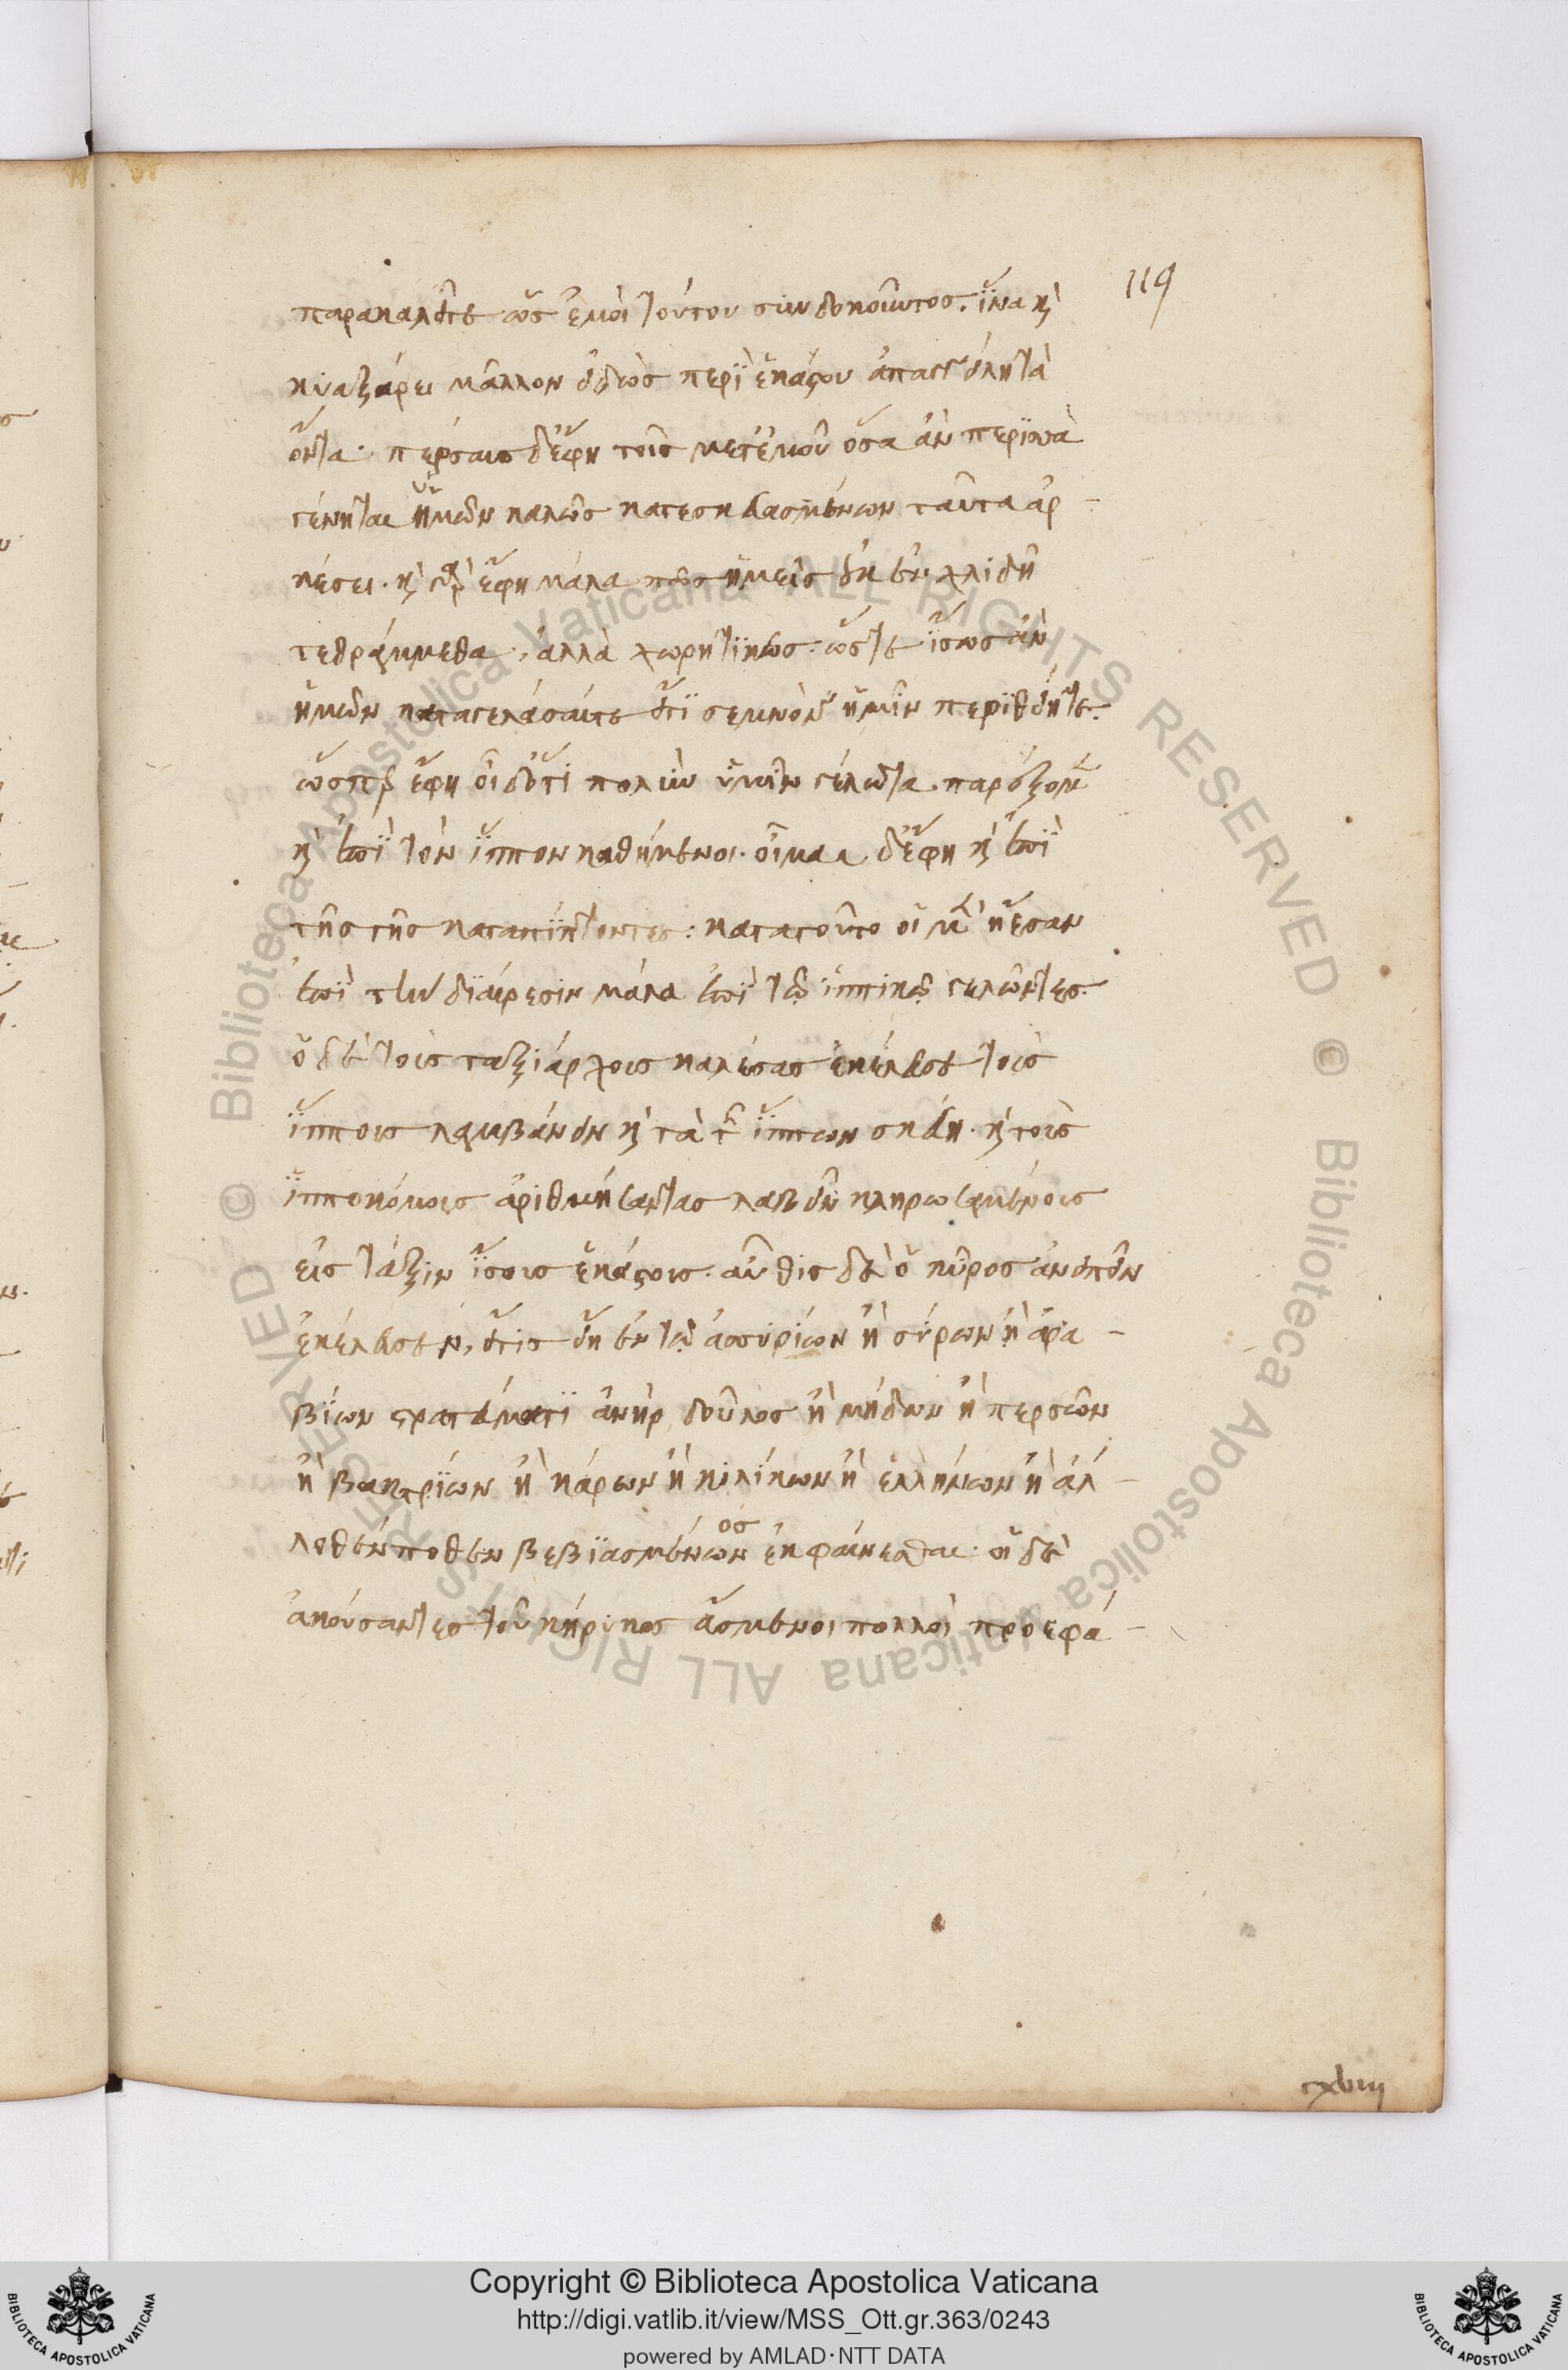 119
παρακαλεῖτε ὡς ἐμοὶ τούτου συνδοκοῦντος. ἵνα κ
κυαξάρει μᾶλλον εἰδὼς περὶ ἑκάστου ἀπαγγείλη τὰ
ὄντα· πέρσαις δ' ἔφη τοῖς μετ' ἐμοῦ ὅσα ἂν περιττὰ
γένηται ὑμῶν καλῶς κατεσκευασμένων ταῦτα ἀρ-
κέσει. κ γὰρ ἔφη μάλα πως ἡμεῖς ἐκ ἐν χλιδῆ
τεθράμμεθα, ἀλλὰ χωρητικῶς· ὥστε ἴσως ἂν
ἡμῶν καταγελάσαιτε εἴτι σεμνὸν ἡμῖν περιθείητε.
ὥσπερ ἔφη οἶδ' ὅτι πολὺν ὑμῖν γέλωτα παρέξομεν
κ ἐπὶ τὸν ἵππον καθήμενοι. οἶμαι δ' ἔφη κ ἐπὶ
τῆς γῆς καταπίπτοντες: κατατοῦτο οἱ μὲν ἤεσαν
ἐπὶ τὴν διαίρεσιν μάλα ἐπὶ τῷ ἱππικῷ γελῶντες.
ὁ δὲ τοὺς ταξιάρχους καλέσας ἐκέλευσε τοὺς
ἵππους λαμβάνειν κ τὰ τῶν ἵππων σκεύη. κ τοὺς
ἱπποκόμους ἀριθμήσαντας λαβεῖν κληρωσαμένους
εἰς τάξιν ἴσους ἑκάστοις. αὖθις δὲ ὁ κῦρος ἀνειπεῖν
ἐκέλευσεν, εἴτις εἴη ἐν τῷ ἀσσυρίων ἢ σύρων ἢ ἀρα-
βίων στρατεύματι ἀνὴρ δοῦλος ἢ μήδων ἢ περσῶν
ἢ βακτρίων ἢ κάρων ἢ κιλίκων ἢ ἑλλήνων ἢ ἀλ-
λοθένποθεν βεβιασμένων ος ἐκφαίνεσθαι. οἱ δὲ
ἀκούσαντες τοῦ κήρυκος ἄσμενοι πολλοὶ προεφά-
cxviiij
Copyright © Biblioteca Apostolica Vaticana
http://digi.vatlib.it/view/MSS_Ott.gr.363/0243
powered by AMLAD·NTT DATA